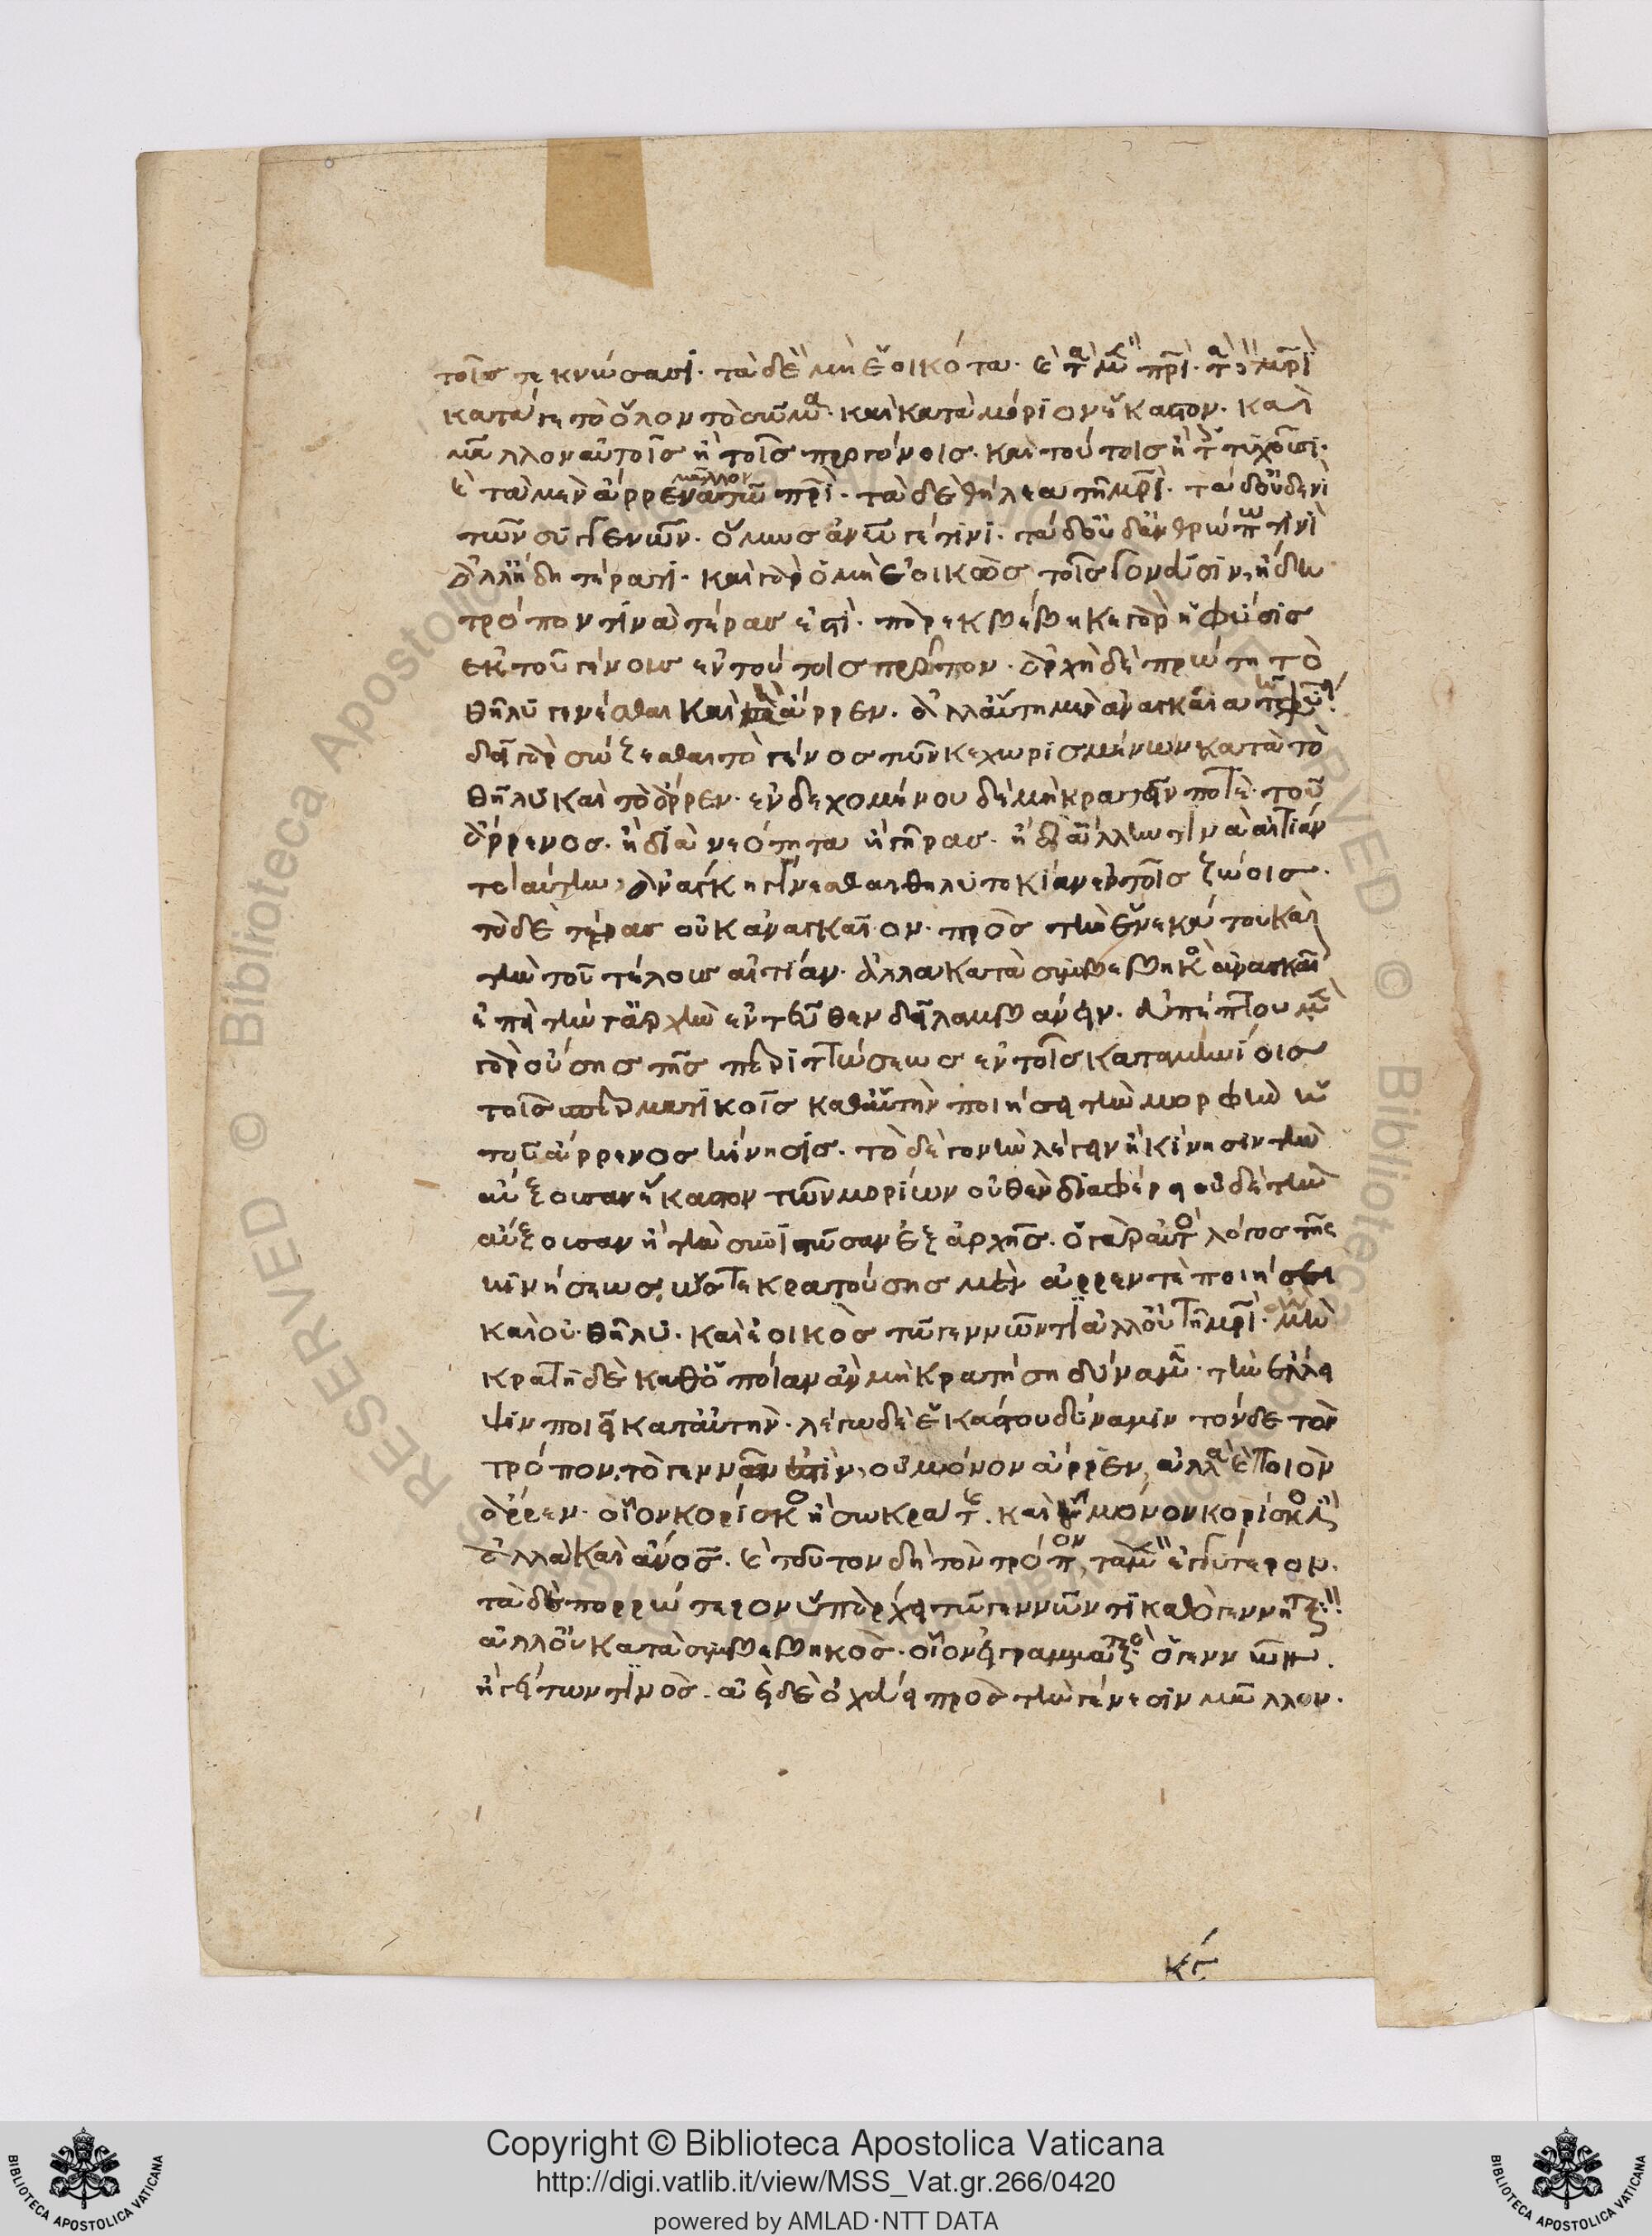 τοῖς τεκνώσασι. τὰ δὲ μὴ ἐοικότα. καὶ τὰ μὲν πρι. τὰ δὲ μρι
κατά τε τὸ ὅλον τὸ σῶμα. καὶ κατὰ μόριον ἕκαστον. καὶ
μᾶλλον αὐτοῖς ἢ τοῖς προγόνοις. καὶ τούτοις ἢ τοῖς τυχοῦσι.
καὶ τὰ μὲν ἄρρενα μᾶλλον τῶ πρι. τὰ δὲ θήλεα τῇ μρι. τὰ δ' οὐδενὶ
τῶν συγγενῶν. ὅμως ἀνω γέ τινι. τὰ δ' οὐδ' ἀνθρώπω τινὶ
ἀλλ' ἤδη τέρατι. καὶ γὰρ ὁ μὴ ἐοικὼς τοῖς γονεῦσιν, ἤδη
τρόπον τινὰ τέρας ἐστί. παρεκβέβηκε γὰρ ἡ φύσις
ἐκ τοῦ γένους ἐν τούτοις τρόπον. ἀρχὴ δὲ πρώτη τὸ
θῆλυ γενέσθαι καὶ μὴ ἄρρεν. ἀλλ' αὕτη μὲν ἀναγκαία τῇ φύσει
δεῖ γὰρ σώζεσθαι τὸ γένος τῶν κεχωρισμένων κατὰ τὸ
θῆλυ καὶ τὸ ἄρρεν. ἐνδεχομένου δὲ μὴ κρατεῖν ποτὲ. τοῦ
ἄρρενος. ἢ διὰ νεότητα ἢ γῆρας. ἢ δι' ἄλλην τινὰ αἰτίαν
τοιαύτην, ἀνάγκη γίνεσθαι θηλυτοκίαν ἐν τοῖς ζώοις.
τὸ δὲ τέρας οὐκ ἀναγκαῖον. πρὸς τὴν ἕνεκά του καὶ
τὴν τοῦ τέλους αἰτίαν. ἀλλὰ κατὰ συμβεβηκὸς ἀναγκαῖ
ἐπεὶ τήν γ' ἀρχὴν ἐντεῦθεν δεῖ λαμβάνειν. εὐπέπτου μὲν
γὰρ οὔσης τῆς περιττώσεως ἐν τοῖς καταμηνίοις
τοῖς σπερματικοῖς καθ' αὑτὴν ποιήσει τὴν μορφὴν ἡ
τοῦ ἄρρενος κίνησις. τὸ δὲ γονὴν λέγειν ἢ κίνησιν τὴν
αὔξουσαν ἕκαστον τῶν μορίων οὐθὲν διαφέρει οὐδὲ τὴν
αὔξουσαν ἢ τὴν συνιστῶσαν ἐξ ἀρχῆς. ὁ γὰρ αὐτὸς λόγος τῆς
κινήσεως, ὥστε κρατούσης μὲν ἄρρεν τε ποιήσει
καὶ οὐ θῆλυ. καὶ ἐοικὸς τῶ γεννῶντι ἀλλ' οὐ τῇ μρι. μὴ
κρατῇ δὲ καθ' ὁποίαν ἂν μὴ κρατήσῃ δύναμιν. τὴν ἔλλει
ψιν ποιεῖ κατ' αὐτήν. λέγω δὲ ἑκάστου δύναμιν τόνδε τὸν
τρόπον, τὸ γεννῶν ἐστὶν, οὐ μόνον ἄρρεν, ἀλλὰ καὶ ποιὸν
ἄρρεν. οἷον κορίσκος ἢ σωκράτης. καὶ οὐ μόνον κορίσκος ἐστὶν
ἀλλὰ καὶ ἄνος. καὶ τοῦτον δὴ τὸν τρόπον, τὰ μὲν ἐγγύτερον.
τὰ δὲ πορρώτερον ὑπάρχει τῶ γεννῶντι καθὸ γεννητικὸν
ἀλλ' οὐ κατὰ συμβεβηκὸς. οἷον εἰ γραμματικὸς ὁ γεννῶν.
ἢ γείτων τινὸς. ἀεὶ δὲ ἰσχύει πρὸς τὴν γένεσιν μᾶλλον.
κς
RESERVED © Biblioteca Apostolica Vaticana
Copyright © Biblioteca Apostolica Vaticana
http://digi.vatlib.it/view/MSS_Vat.gr.266/0420
powered by AMLAD·NTT DATA
BIBLIOTECA APOSTOLICA VATICANA
BIBLIOTECA APOSTOLICA VATICANA